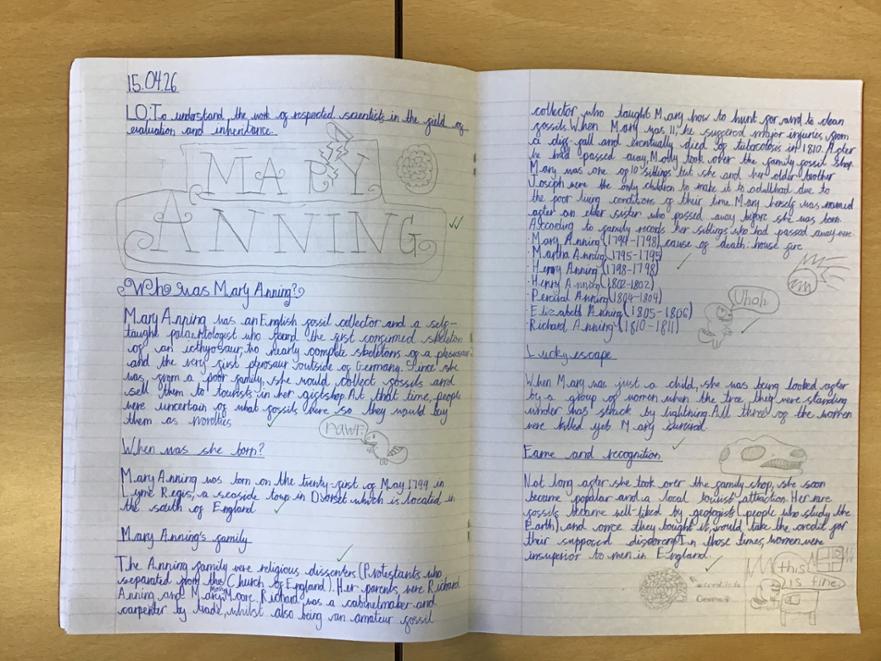 15.04.26
LO: To understand the work of respected scientists in the field of
evaluation and inheritance.
MARY
ANNING
Who was Mary Anning?
Mary Anning was an English fossil collector and a self-
taught palaeontologist who found the first confirmed skeleton
of an icthyosaur, two nearly complete skeletons of a plesiosaur
and the very first pterosaur outside of Germany. Since she
was from a poor family, she would collect fossils and
sell them to tourists in her giftshop. At that time, people
were uncertain of what fossils were so they would buy
them as novelties.
rawr!
When was she born?
Mary Anning was born on the twenty-first of May 1799 in
Lyme Regis, a seaside town in Dorset which is located in
the south of England
Mary Anning's family
The Anning family were religious dissenters (Protestants who
separated from the Church of England). Her parents were Richard
Anning and Mary Moore. Richard was a cabinetmaker and
carpenter by trade, whilst also being an amateur fossil
collector who taught Mary how to hunt for and to clean
fossils. When Mary was 11, he suffered major injuries from
a cliff-fall and eventually died of tubaculosis in 1810. After
he had passed away, Molly took over the family fossil shop.
Mary was one of 10 siblings but she and her older brother
Joseph were the only children to make it to adulthood due to
the poor living conditions of their time. Mary herself was named
after an elder sister who passed away before she was born.
According to family records her siblings who had passed away were
· Mary Anning (1794-1798) cause of death: house fire
· Martha Anning (1795-1795)
· Henry Anning (1798-1798)
· Henry Anning (1802-1802)
· Percival Anning (1804-1804)
· Elizabeth Anning (1805-1806)
· Richard Anning (1810-1811)
Uhoh
Lucky escape
When Mary was just a child, she was being looked after
by a group of women when the tree they were standing
under was struck by lightning. All three of the women
were killed yet Mary survived.
Fame and recognition
Not long after she took over the family shop, she soon
became popular and a local tourist attraction. Her rare
fossils became well-liked by geologists (people who study the
Earth) and once they bought it, would take the credit for
their supposed discovery. In those times, women were
insuperior to men in England.
this
is fine